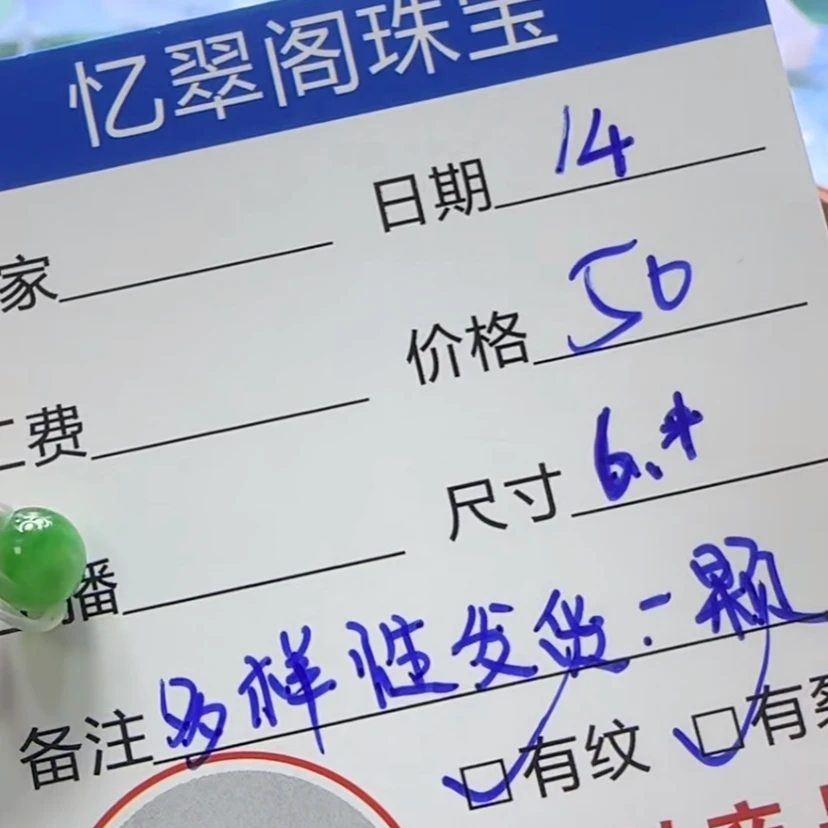 忆翠阁珠宝
日期 14
家
价格 50
工费
尺寸 6.*
播
备注 多样性发货:一颗
有纹 有裂